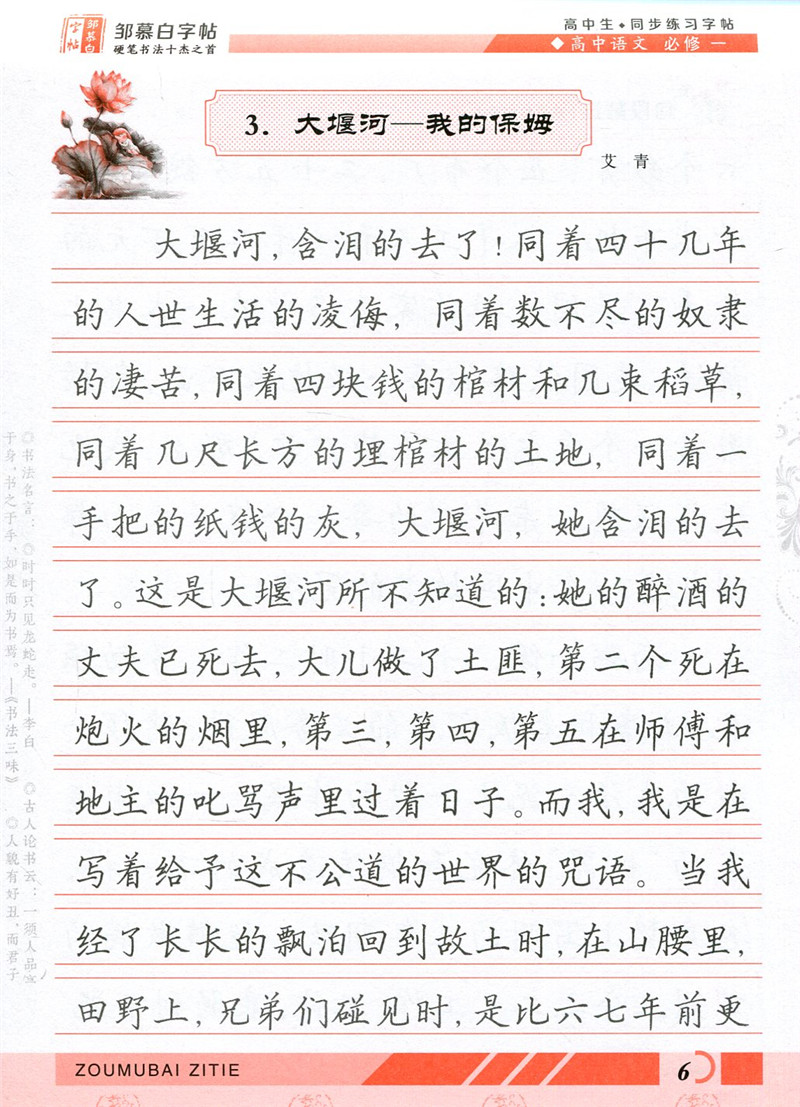 邹慕白字帖
邹慕白字帖
硬笔书法十杰之首
高中生·同步练习字帖
◆高中语文 必修 一
3. 大堰河—我的保姆
艾 青
大堰河,含泪的去了!同着四十几年
的人世生活的凌侮, 同着数不尽的奴隶
的凄苦,同着四块钱的棺材和几束稻草,
同着几尺长方的埋棺材的土地, 同着一
手把的纸钱的灰, 大堰河, 她含泪的去
了。这是大堰河所不知道的:她的醉酒的
丈夫已死去,大儿做了土匪,第二个死在
炮火的烟里,第三,第四,第五在师傅和
地主的叱骂声里过着日子。而我,我是在
写着给予这不公道的世界的咒语。 当我
经了长长的飘泊回到故土时,在山腰里,
田野上,兄弟们碰见时,是比六七年前更
◎书法名言: ◎时时只见龙蛇走。—李白 ◎古人论书云:一须人品高
于身,书之于手,如是而为书焉。—《书法三味》 ◎人貌有好丑,而君子
ZOUMUBAI ZITIE
6